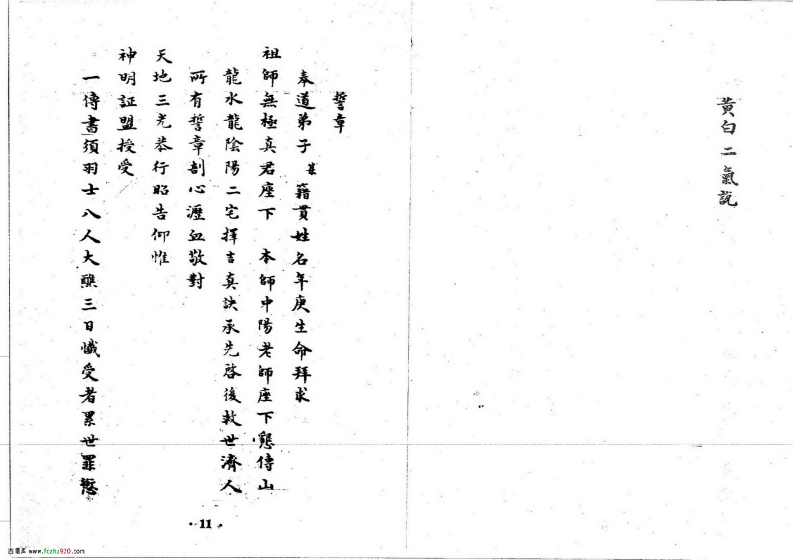 黃白二氣說
誓章
奉道弟子 某 籍貫姓名年庚生命拜求
祖師無極真君座下 本師中陽老師座下懇傳山
龍水龍陰陽二宅擇吉真訣承先啓後救世濟人
所有誓章剖心瀝血敬對
天地三光恭行昭告仰惟
神明証盟授受
一傳書須羽士八人大醮三日懺受者累世罪愆
·11·
古籍库 www.fczhu920.com